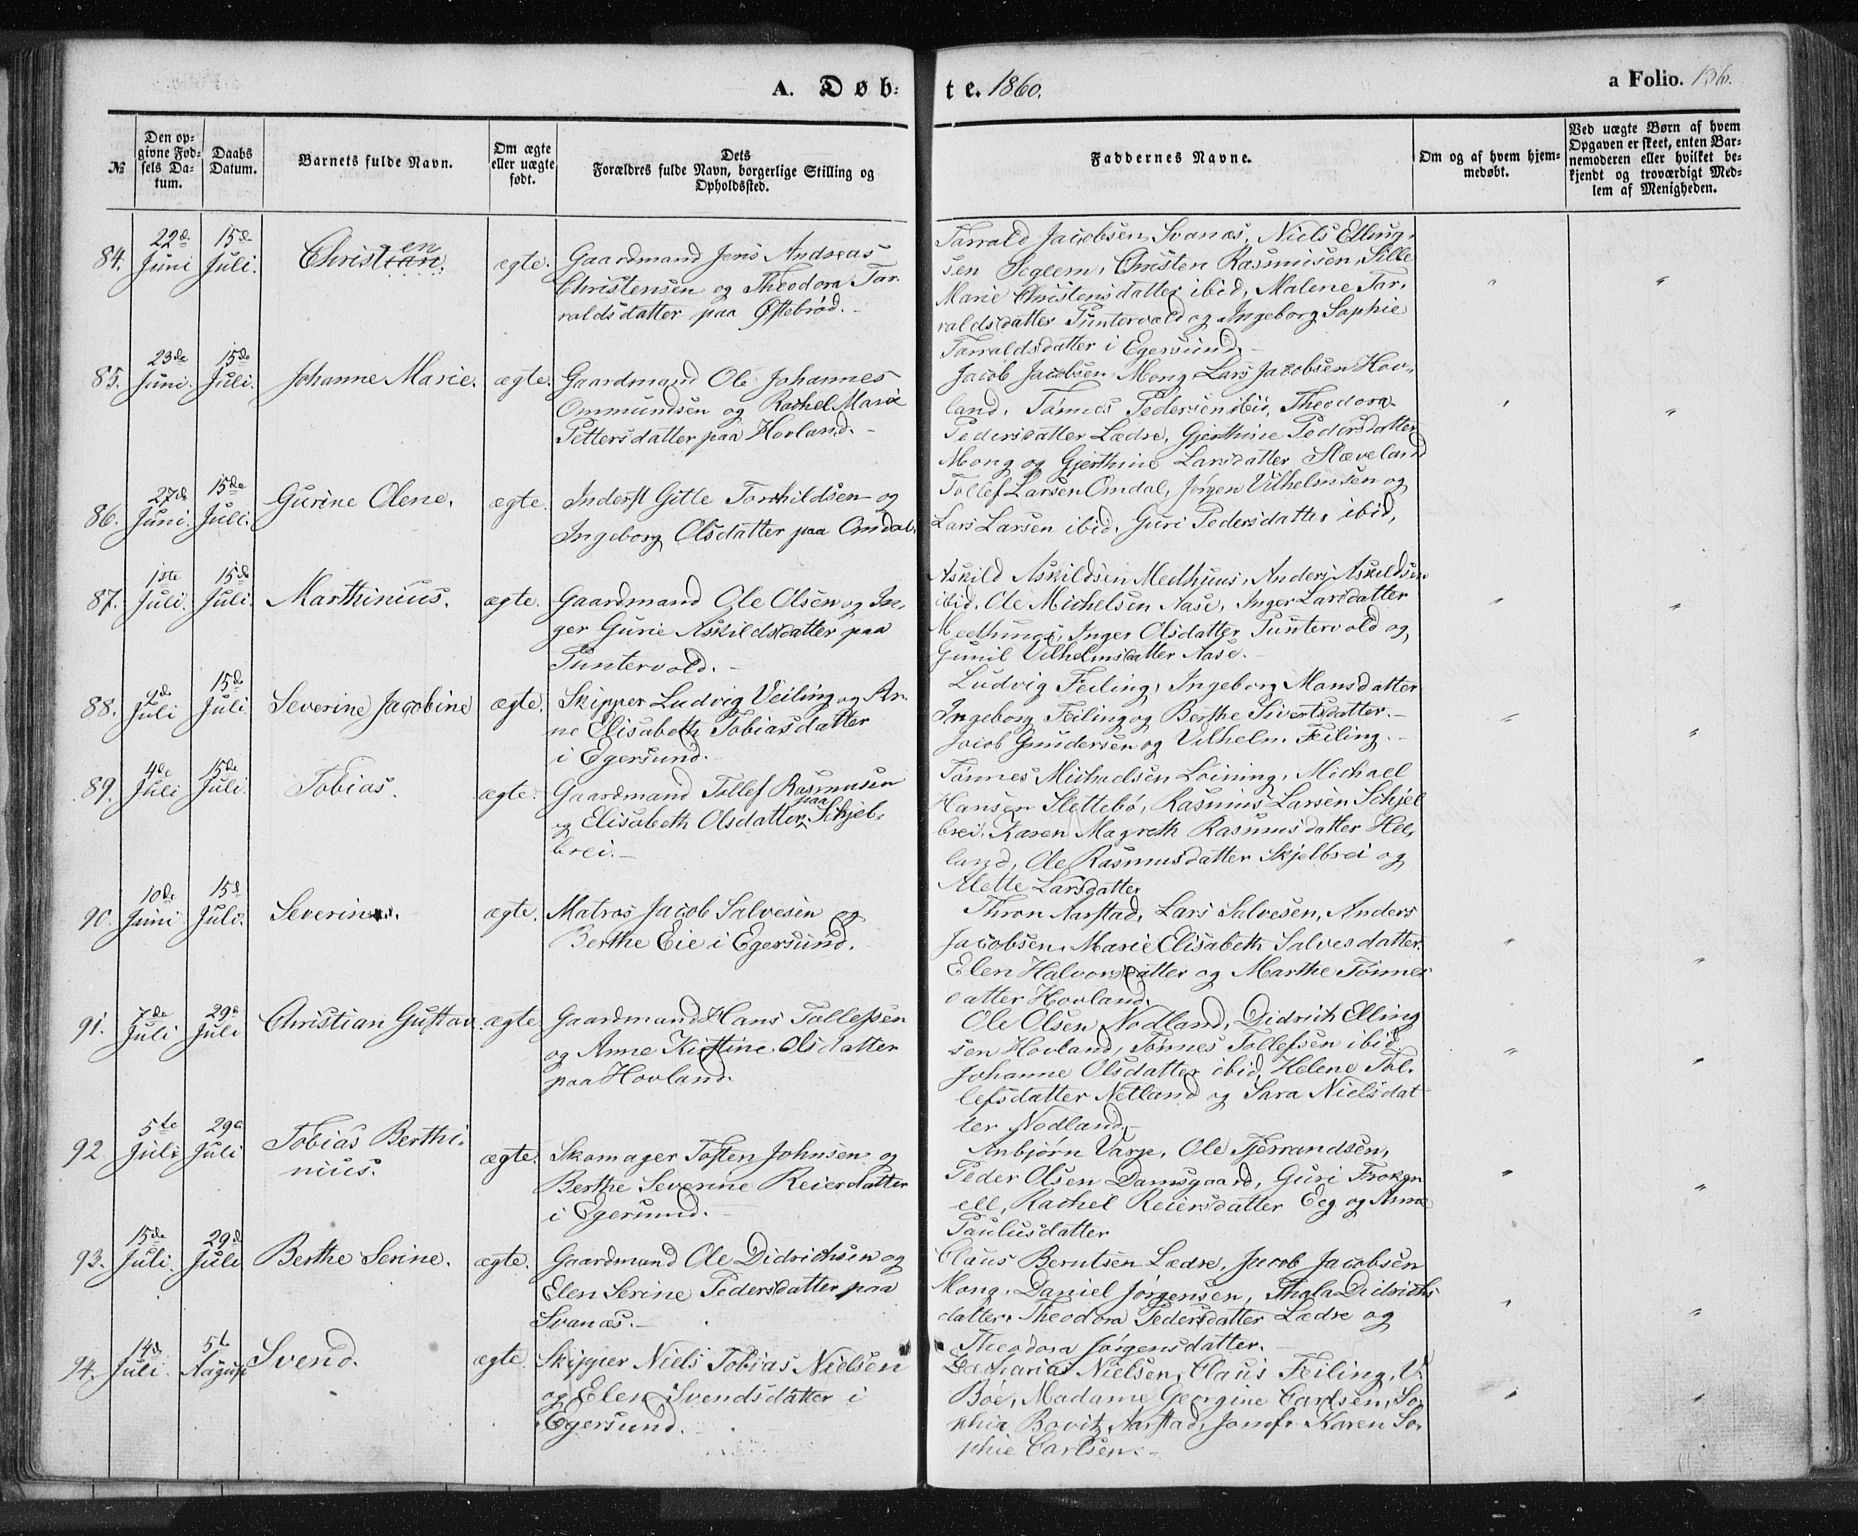 A. Døb-
te. 1860.
a Folio. 136.
№
Den op-
givne Fød-
sels Da-
tum.
Daabs
Datum.
Barnets fulde Navn.
Om ægte
eller uægte
født.
Dets
Forældres fulde Navn, borgerlige Stilling og
Opholdssted.
Faddernes Navne.
Om og af hvem hjem-
medøbt.
Ved uægte Børn af hvem
Opgaven er skeet, enten Bar-
nemoderen eller hvilket be-
kjendt og troværdigt Med-
lem af Menigheden.
84.
22de
Juni
15de
Juli.
Christen
ægte.
Gaardmand Jens Andreas
Christensen og Theodora Tar-
raldsdatter paa Østebrød.
Tarrald Jacobsen Svanæs, Niels Elling-
sen Segleem, Christen Rasmussen, Sille
Marie Christensdatter ibid, Malene Tar-
raldsdatter Puntervold og Ingeborg Sophie
Tarraldsdatter i Egersund.
85.
23de
Juni.
15de
Juli.
Johanne Marie.
ægte.
Gaardmand Ole Johannes
Ommundsen og Rachel Marie
Pettersdatter paa Hovland.
Jacob Jacobsen Mong, Lars Jacobsen Hov-
land, Tønnes Pedersen ibid, Theodora
Pedersdatter Lædre, Gjerthine Pedersdatter
Mong og Gjerthine Larsdatter Slæveland
86.
27de
Juni.
15de
Juli.
Gurine Olene.
ægte.
Inderst Gitle Torkildsen og
Ingeborg Olsdatter paa Omdal.
Tollef Larsen Omdal, Jørgen Vilhelmsen og
Lars Larsen ibid, Guri Pedersdatter ibid,
87.
1ste
Juli.
15de
Juli.
Marthinius.
ægte.
Gaardmand Ole Olsen og In-
ger Gurie Askildsdatter paa
Puntervold.
Askild Askildsen Medhuus, Anders Askildsen
ibid, Ole Michelsen Aase, Inger Larsdatter
Medhuus, Inger Olsdatter Puntervold og
Gunil Vilhelmsdatter Aase.
88.
2de
Juli
15de
Juli
Severine Jacobine
ægte.
Skipper Ludvig Veiling og An-
ne Elisabeth Tobiasdatter
i Egersund.
Ludvig Feiling, Ingeborg Mansdatter
Ingeborg Feiling og Berthe Sivertsdatter.
Jacob Gundersen og Vilhelm Feiling.
89.
4de
Juli
15de
Juli.
Tobias.
ægte.
Gaardmand Tollef Rasmusen
og Elisabeth Olsdatter paa Skjel-
brei.
Tønnes Michaelsen Loining, Michael
Hansen Slettebø, Rasmus Larsen Schjel
brei, Karen Magreth Rasmusdatter Hel-
land, Ole Rasmusdatter Skjelbrei og
Alette Larsdatter
90.
10de
Juni
15d
Juli.
Severin
ægte.
Matros Jacob Salvesen og
Berthe Eie i Egersund.
Thron Aarstad, Lars Salvesen, Anders
Jacobsen, Marie Elisabeth Salvesdatter,
Elen Halvorsdatter og Marthe Tønnes
datter Hovland.
91.
7de
Juli
29d
Juli
Christian Gustav.
ægte
Gaardmand Hans Tollefsen
og Anne Kistine Olsdatter
paa Hovland.
Ole Olsen Nodland, Didrich Elling
sen Hovland, Tønnes Tollefsen ibid
Johanne Olsdatter ibid, Helene Tol-
lefsdatter Netland og Sara Nielsdat-
ter Nodland.
92
5te
Juli
29d
Juli
Tobias Berthi-
nius.
ægte.
Skomager Tosten Johnsen og
Berthe Severine Reiersdatter
i Egersund.
Anbjørn Varp, Ole Tjerrandsen,
Peder Olsen Damsgaard, Guri
Rachel Reiersdatter Eeg og Anne
Paulusdatter
93.
15de
Juli.
29d
Juli
Berthe Serine.
ægte.
Gaardmand Ole Didrichsen og
Elen Serine Pedersdatter paa
Svanæs.
Claus Berntsen Lædre, Jacob Jacobsen
Mong, Daniel Jørgensen, Thala Didrichs
datter, Theodora Pedersdatter Lædre og
Theodora Jørgensdatter.
94.
14d
Juli.
5t
August
Svend.
ægte.
Skipper Niels Tobias Nielsen
og Elen Svendsdatter i
Egersund.
Zacharias Nielsen, Claus Feiling, V.
Böe, Madame Georgine Carlsen, So-
phia Bovitz Aarstad, Jomfr Karen So-
phie Carlsen.